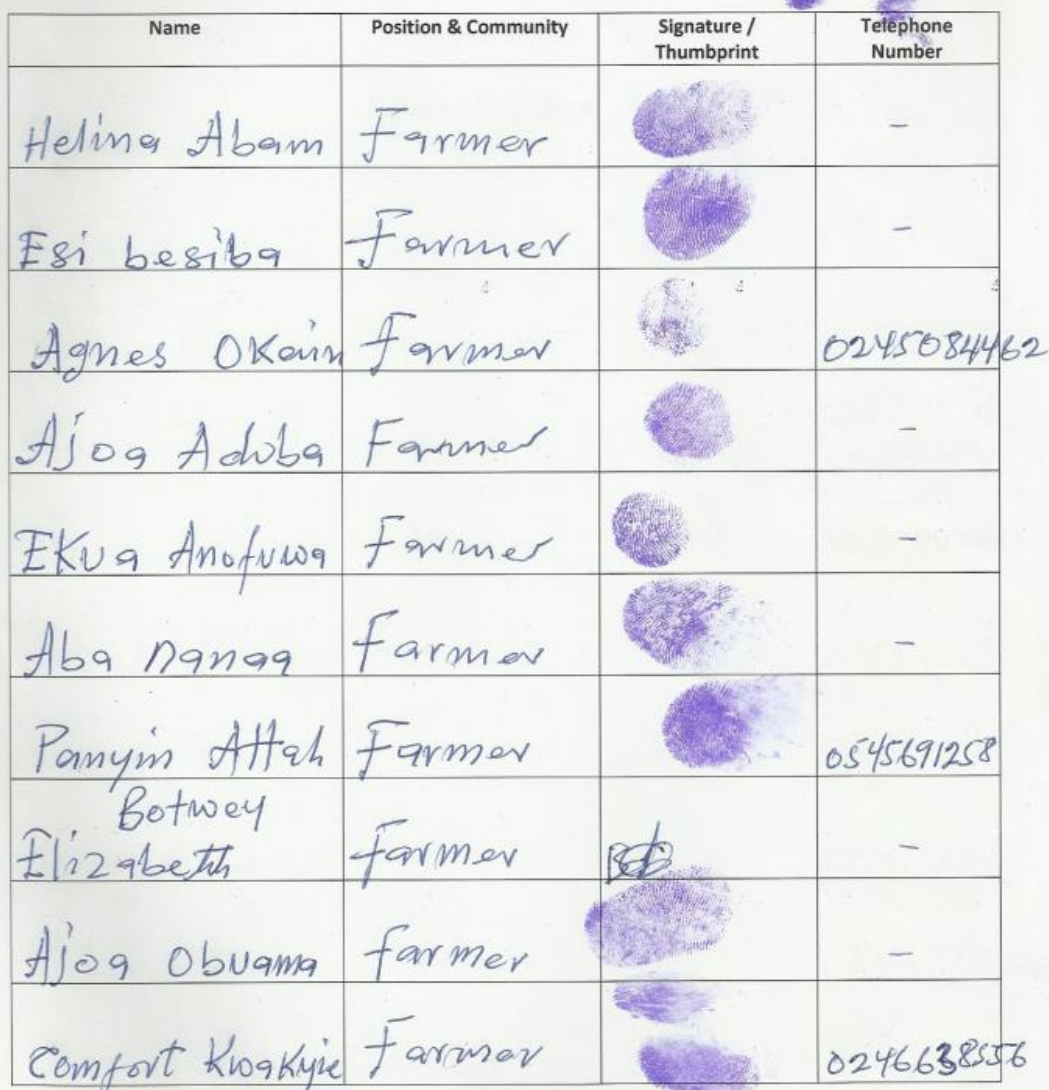 Name Position & Community Signature / Thumbprint Telephone Number
Helina Abam Farmer -
Esi besiba Farmer -
Agnes OKain Farmer 0245084462
Ajoa Adoba Farmer -
EKua Anofuwa Farmer -
Aba nanaa Farmer -
Panyin Attah Farmer 0545691258
Botwey
Elizabeth farmer -
Ajoa Obuama farmer -
Comfort Kwakyie Farmer 0246638556